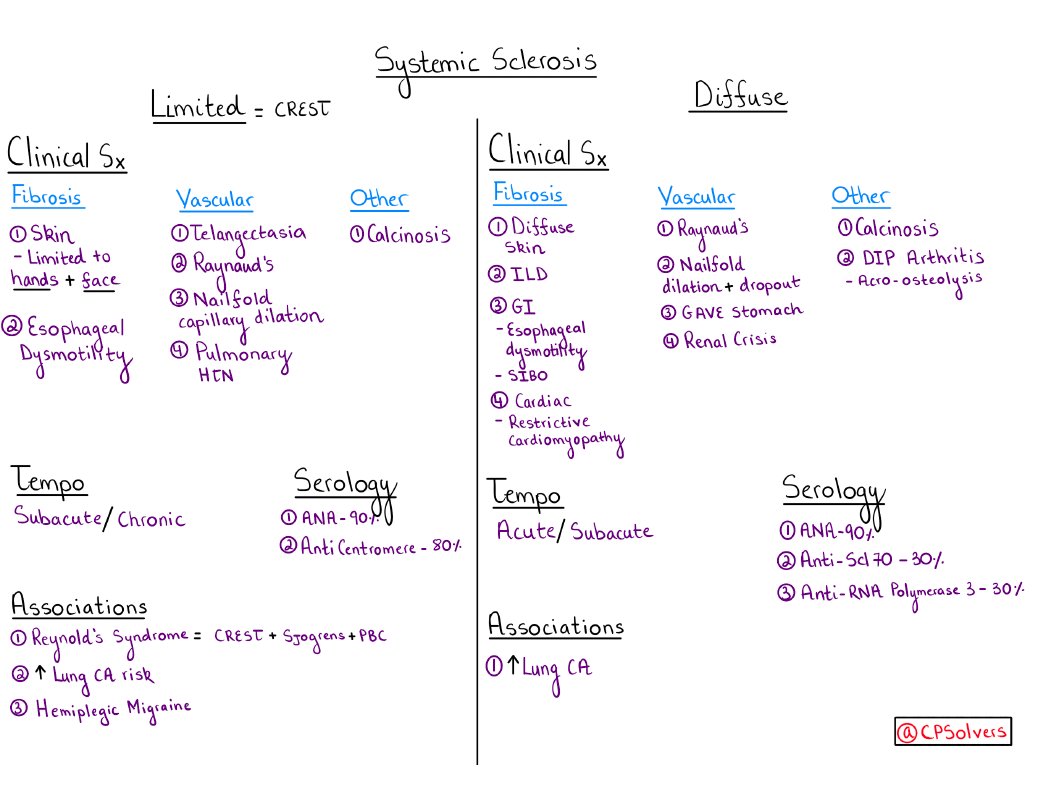 Systemic Sclerosis
Limited = CREST
Clinical Sx
Fibrosis
① Skin
- Limited to
hands + face
② Esophageal
Dysmotility
Vascular
① Telangectasia
② Raynaud's
③ Nailfold
capillary dilation
④ Pulmonary
HTN
Other
① Calcinosis
Tempo
Subacute/Chronic
Serology
① ANA-90%
② Anti Centromere - 80%
Associations
① Reynold's Syndrome = CREST + Sjogrens + PBC
② ↑ Lung CA risk
③ Hemiplegic Migraine
Diffuse
Clinical Sx
Fibrosis
① Diffuse
Skin
② ILD
③ GI
- Esophageal
dysmotility
- SIBO
④ Cardiac
- Restrictive
cardiomyopathy
Vascular
① Raynaud's
② Nailfold
dilation + dropout
③ GAVE stomach
④ Renal Crisis
Other
① Calcinosis
② DIP Arthritis
- Acro-osteolysis
Tempo
Acute/Subacute
Serology
① ANA-90%
② Anti-Scl 70 - 30%
③ Anti-RNA Polymerase 3 - 30%
Associations
① ↑ Lung CA
@CPSolvers